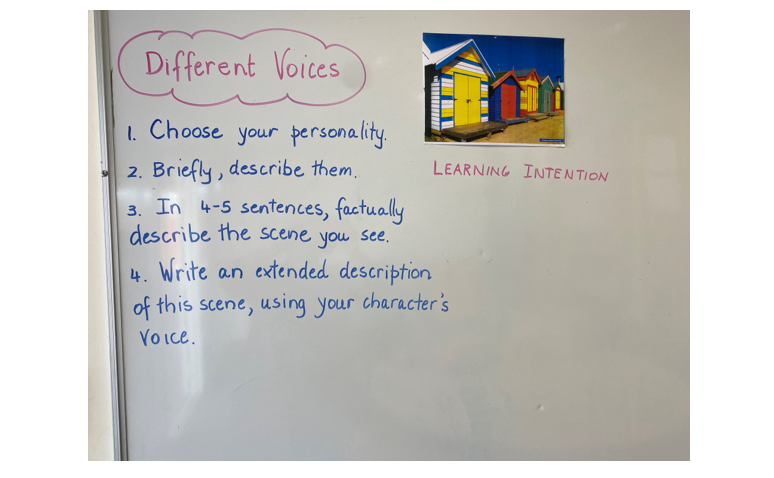 Different Voices
1. Choose your personality.
2. Briefly, describe them.
3. In 4-5 sentences, factually
describe the scene you see.
4. Write an extended description
of this scene, using your character's
voice.
LEARNING INTENTION